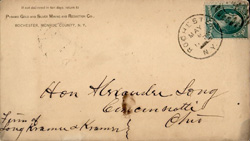 If not delivered in ten days, return to
Pyramid Gold and Silver Mining and Reduction Co.,
ROCHESTER, MONROE COUNTY, N. Y.
ROCHESTER
MAY
N.Y.
Hon Alexander Long
Cincinnatti
Ohio
Firm of
Long Kramer & Kramer